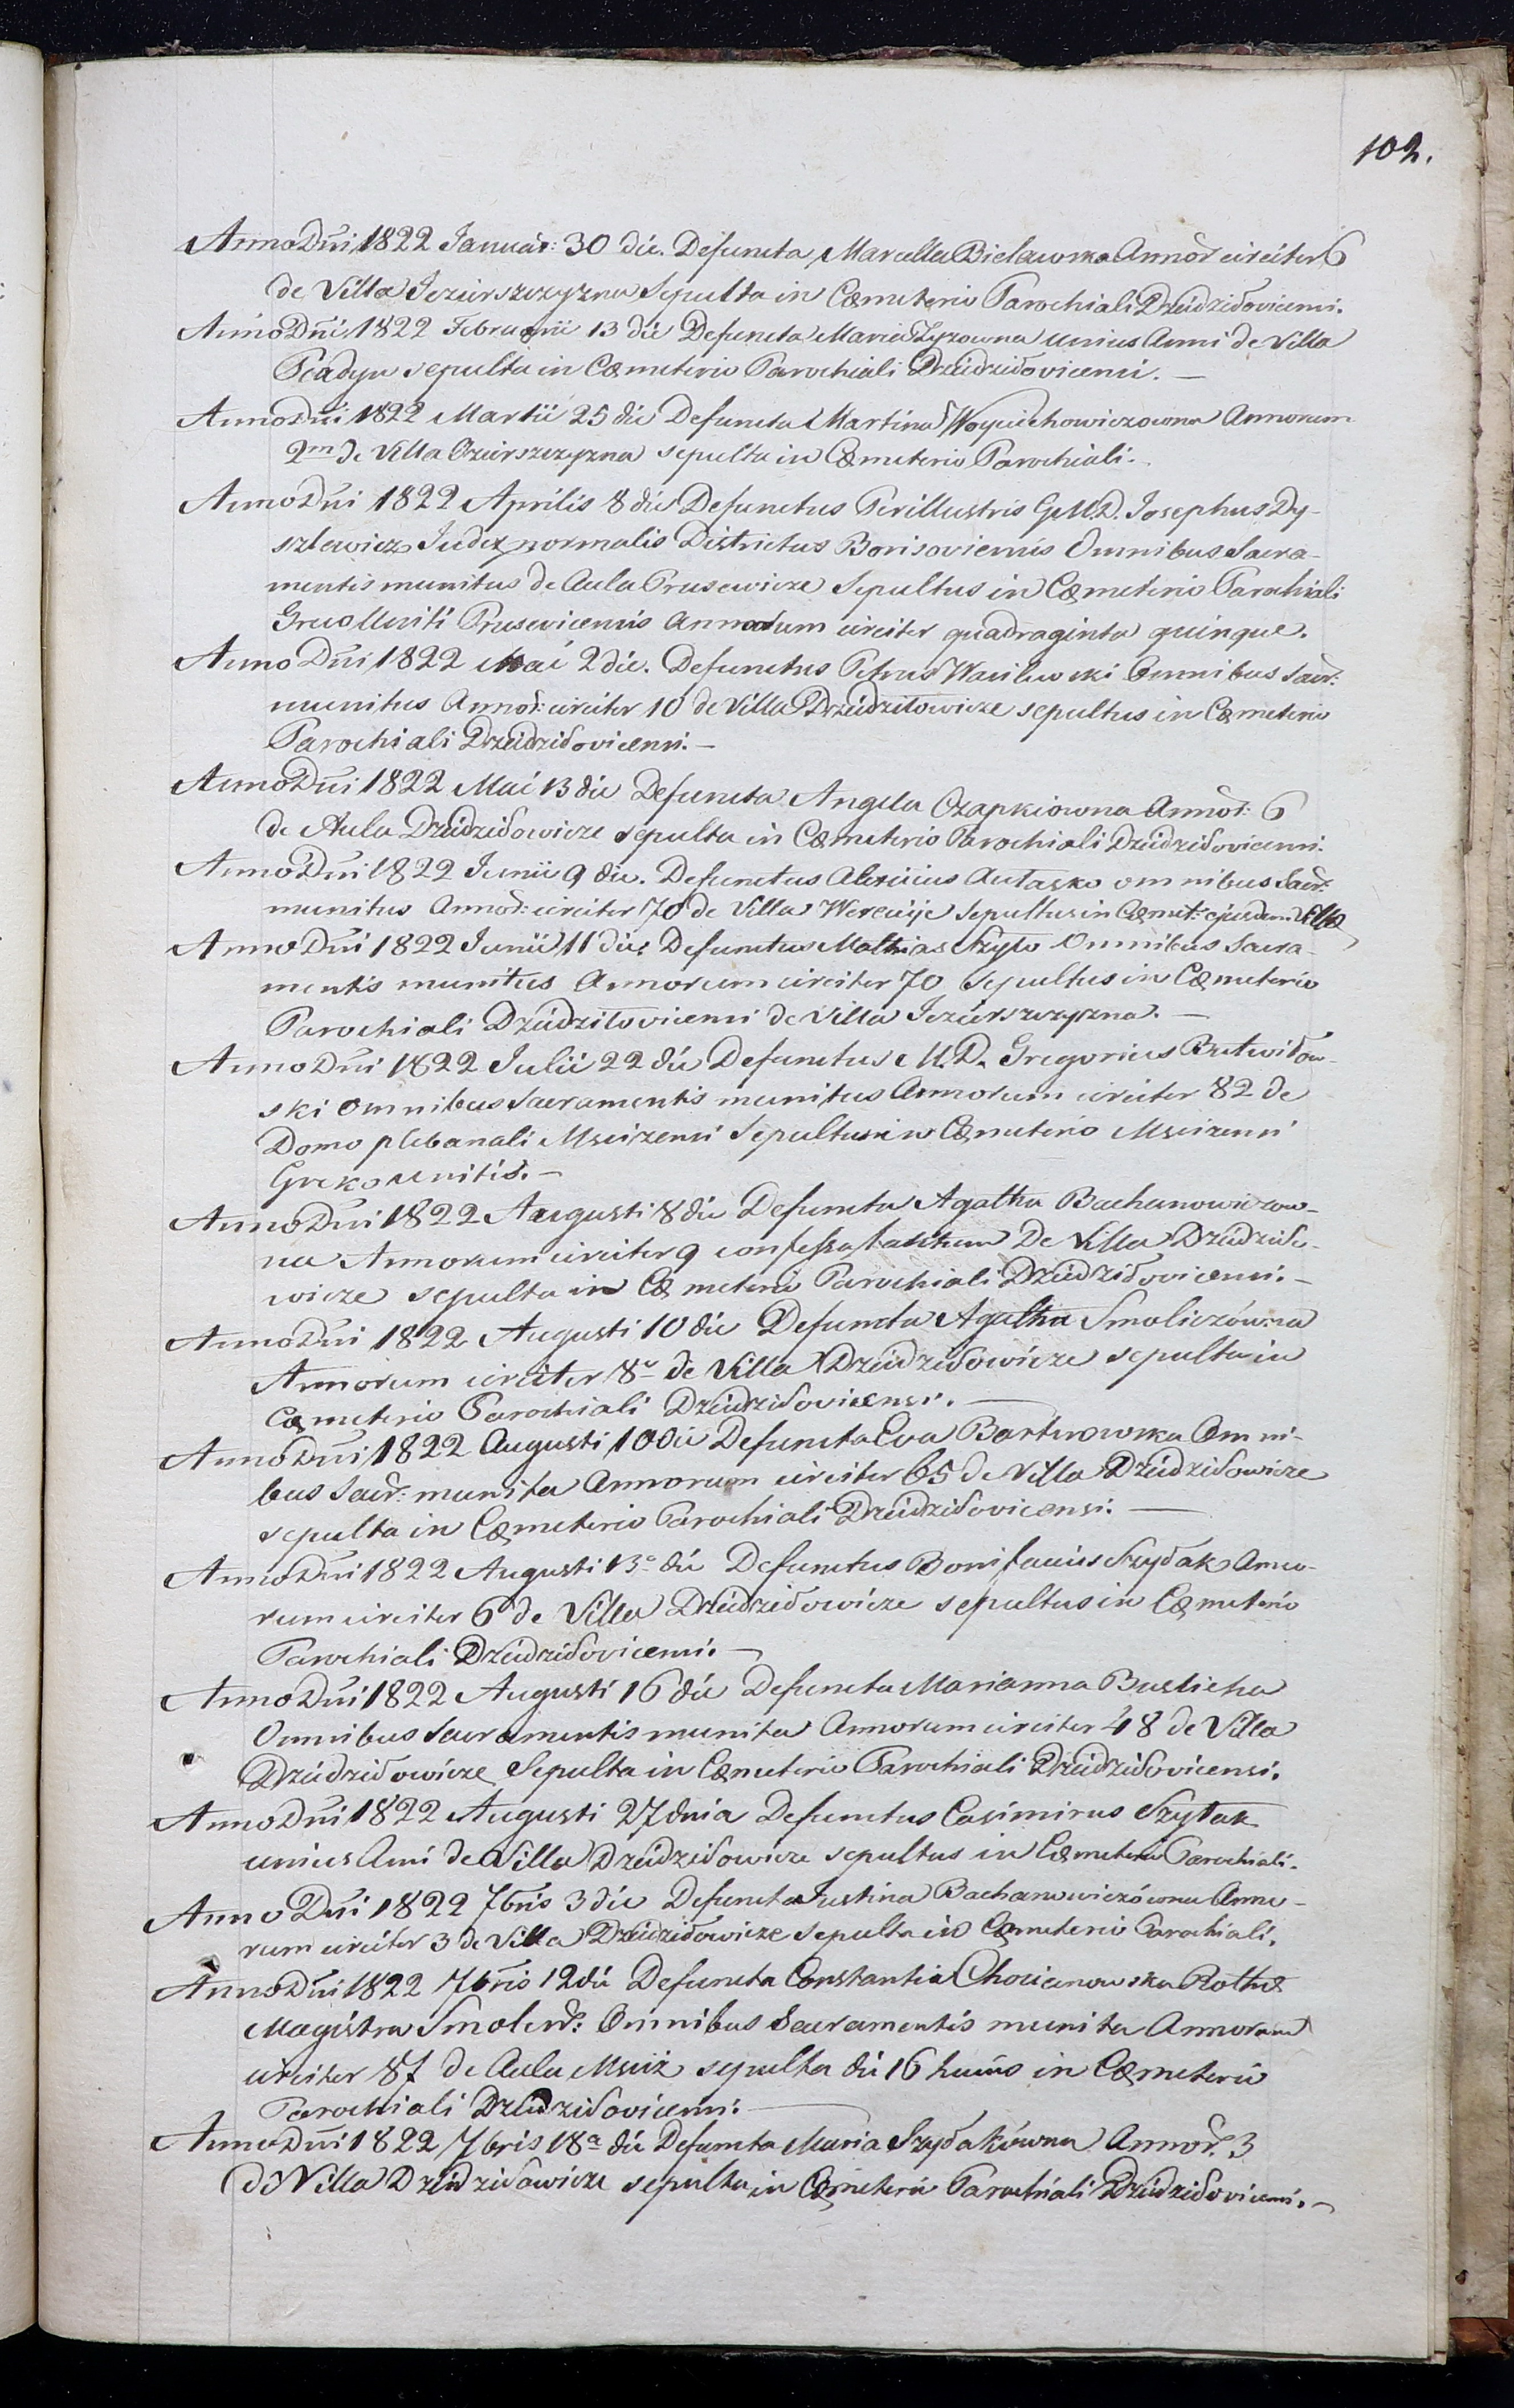 102.
Anno Dni 1822 Januar: 30 die. Defuncta Marcella Bielawska Annor circiter 6
de Villa Jezierszczyzna Sepulta in Cœmeterio Parochiali Dziedziłovicensi.
Anno Dni 1822 Februarii 13 die Defuncta Maria Zyzowna unius Anni de Villa
sepulta in Cœmeterio Parochiali Dziedziłovicensi. —
Anno Dni 1822 Martii 25 die Defuncta Martina Woyciechowiczowna Annorum
2m de Villa Ozierszczyzna sepulta in Cœmeterio Parochiali.
Anno Dni 1822 Aprilis 8 die Defunctus Perillustris G. M. D. Josephus Dy-
szlewicz Judex normalis Districtus Borisoviensis Omnibus Sacra-
mentis munitus de Aula Prusewicze Sepultus in Cœmeterio Parochiali
Greco Uniti Prusevicensis Annorum circiter quadraginta quinque.
Anno Dni 1822 Mai 2 die. Defunctus Petrus Wasilewski Omnibus Sacr:
munitus Annor: circiter 10 de Villa Dziedziłowicze sepultus in Cœmeterio
Parochiali Dziedziłovicensi. —
Anno Dni 1822 Mai 13 die Defuncta Angela Czapkiowna Annor: 6
de Aula Dziedziłowicze sepulta in Cœmeterio Parochiali Dziedziłovicensi.
Anno Dni 1822 Junii 9 die. Defunctus Alexius Autasko omnibus Sacr:
munitus Annor: circiter 70 de Villa Sepultus in Cœmet: ejusdem Villæ
Anno Dni 1822 Junii 11 die Defunctus Mathias Szyło Omnibus Sacra-
mentis munitus Annorum circiter 70 Sepultus in Cœmeterio
Parochiali Dziedziłovicensi de Villa Jezierszczyzna. —
Anno Dni 1822 Julii 22 die Defunctus M. D. Gregorius Butwiłow-
ski omnibus Sacramentis munitus Annorum circiter 82 de
Domo plebanali Mscizensi Sepultus in Cœmeterio Mscizensi
Greko Unitis. —
Anno Dni 1822 Augusti 8 die Defuncta Agatha Bachanowiczow-
na Annorum circiter 9 confessa tantum De Villa Dziedziło-
wicze sepulta in Cœmeterio Parochiali Dziedziłovicensi. —
Anno Dni 1822 Augusti 10 die Defuncta Agatha Smoliczówna
Annorum circiter 8 de Villa Dziedziłowicze sepulta in
Cœmeterio Parochiali Dziedziłovicensi. —
Anno Dni 1822 Augusti 10 die Defuncta Eva Bartnowska Omni-
bus Sacr: munita Annorum circiter 65 de Villa Dziedziłowicze
sepulta in Cœmeterio Parochiali Dziedziłovicensi. —
Anno Dni 1822 Augusti 13 die Defunctus Bonifacius Szyłak Anno-
rum circiter 6 de Villa Dziedziłowicze sepultus in Cœmeterio
Parochiali Dziedziłovicensi. —
Anno Dni 1822 Augusti 16 die Defuncta Marianna Buslicha
Omnibus Sacramentis munita Annorum circiter 48 de Villa
Dziedziłowicze Sepulta in Cœmeterio Parochiali Dziedziłovicensi.
Anno Dni 1822 Augusti 27 dnia Defunctus Casimirus Szyłak
unius Ani de Villa Dziedziłowicze sepultus in Cœmeterio Parochiali.
Anno Dni 1822 7bris 3 die Defuncta Justina Bachanowiczówna Anno-
rum circiter 3 de Villa Dziedziłowicze sepulta in Cœmeterio Parochiali.
Anno Dni 1822 7bris 12 die Defuncta Constantia Chocianowska Rothæ
Magistra Smolens: Omnibus Sacramentis munita Annorum
circiter 87 de Aula Msciż sepulta die 16 hujus in Cœmeterio
Parochiali Dziedziłovicensi. —
Anno Dni 1822 7bris 18a die Defuncta Maria Szyłakówna Annor. 3
de Villa Dziedziłowicze sepulta in Cœmeterio Parochiali Dziedziłovicensi. —